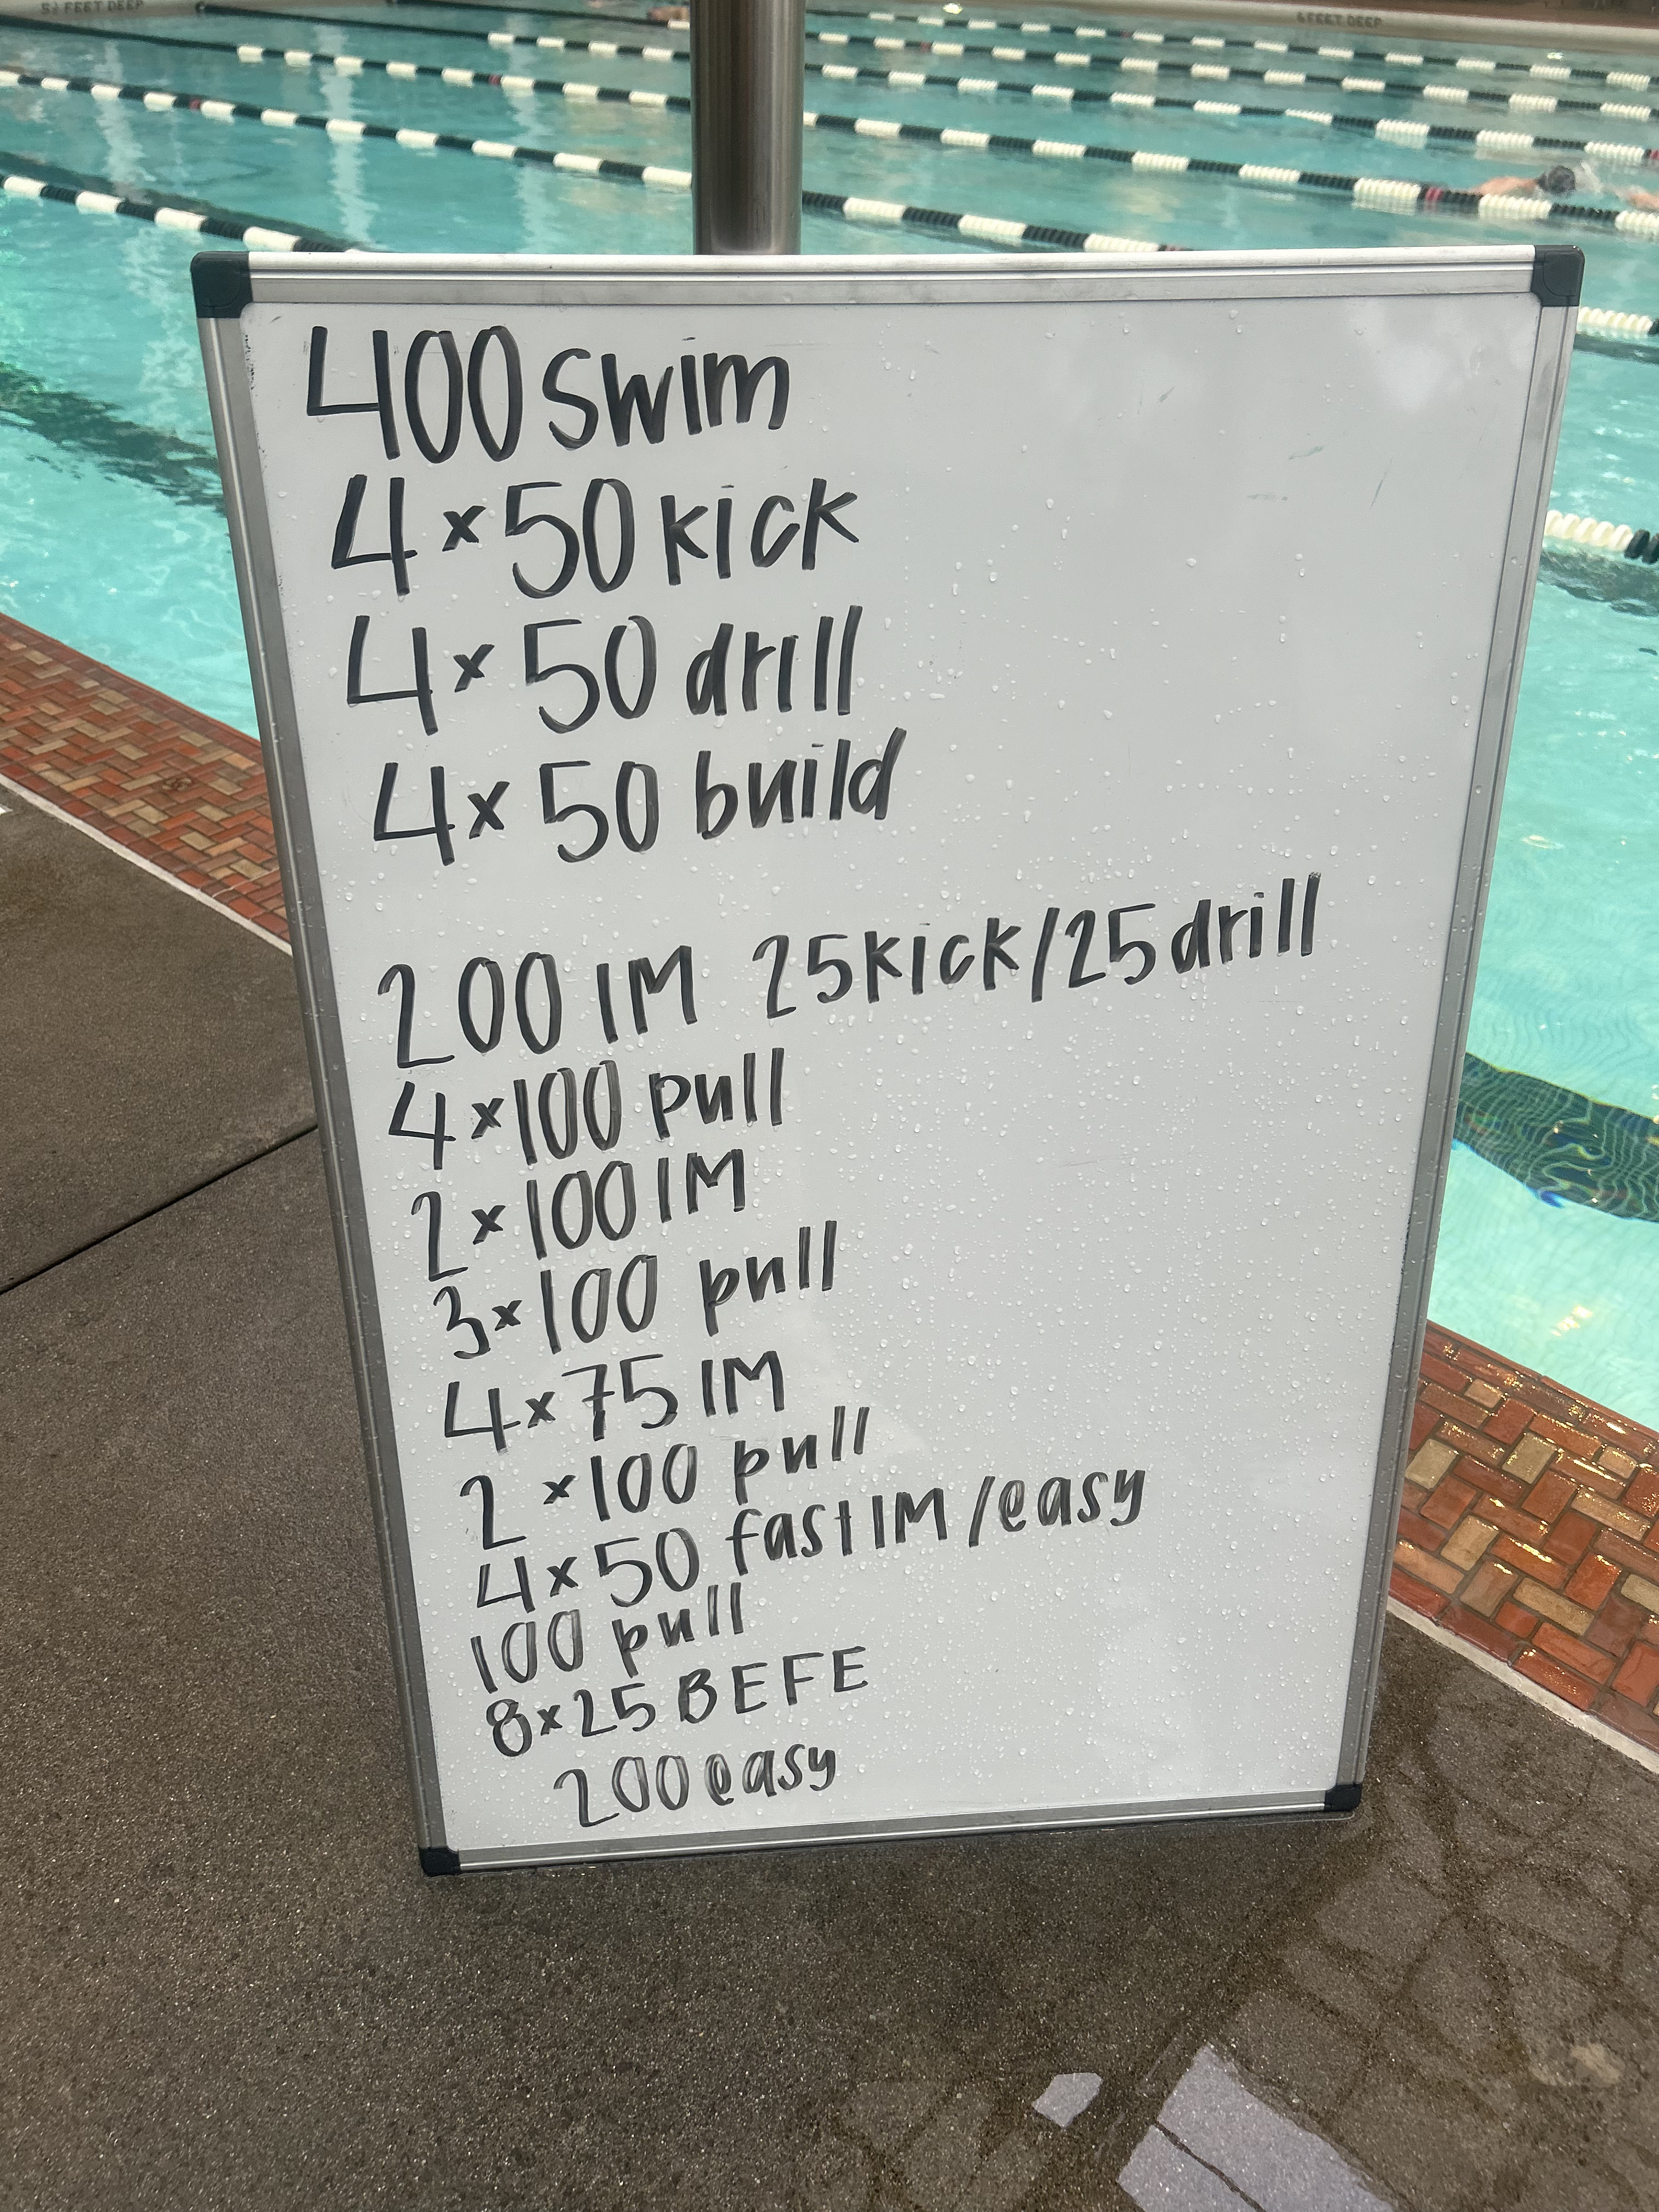 5½ FEET DEEP
4 FEET DEEP
400 swim
4 x 50 kick
4 x 50 drill
4 x 50 build
200 IM 25 kick/25 drill
4 x 100 pull
2 x 100 IM
3 x 100 pull
4 x 75 IM
2 x 100 pull
4 x 50 fast IM /easy
100 pull
8 x 25 BEFE
200 easy